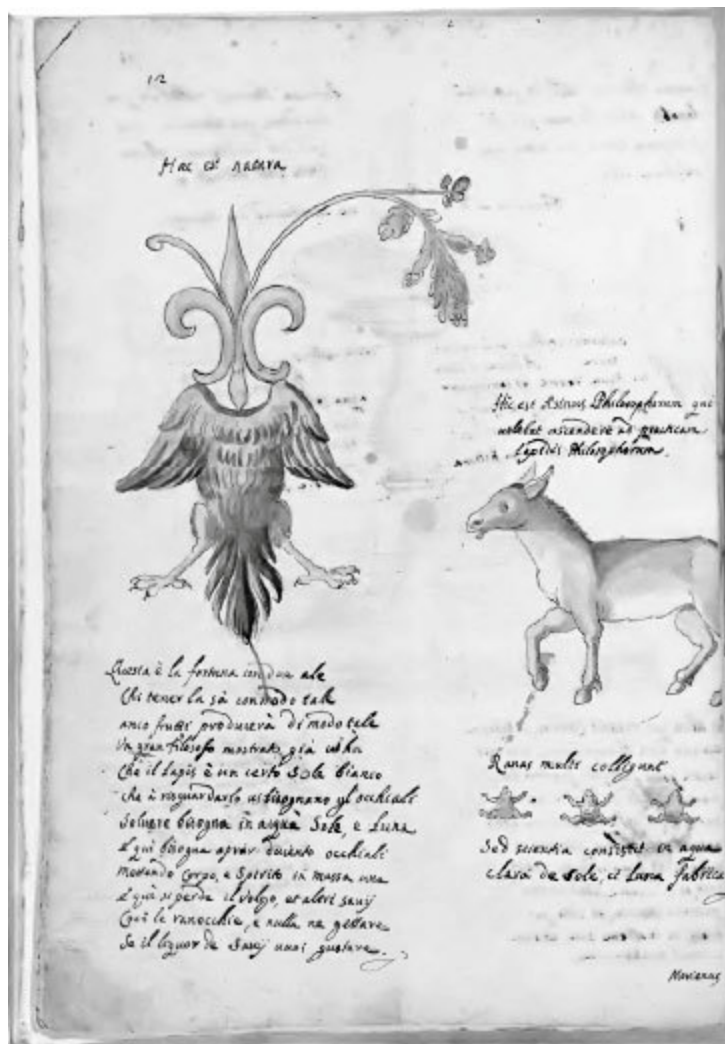 12
Haec est natura
Hic est Asinus Philosophorum qui
volebat ascendere ad practicam
Lapidis Philosophorum.
Questa è la fortuna con due ale
Chi tener la sà con modo tale
anco frutti producerà di modo tale
Un gran filosofo mostrato già
Che il Lapis è un certo Sole bianco
che à risguardarlo bisognano gl'occhiali
Solvere bisogna in acqua Sole, e Luna
E qui bisogna aprir ducento occhiali
mettendo Corpo, e Spirito in massa una
E qui si perde il volgo, et altri savij
le ranocchie, e nulla ne
Se il liquor de Savij gustare.
Ranas multi colligunt
Sed scientia consistit in aqua
clara de Sole, et Luna Fabrica
Morienus